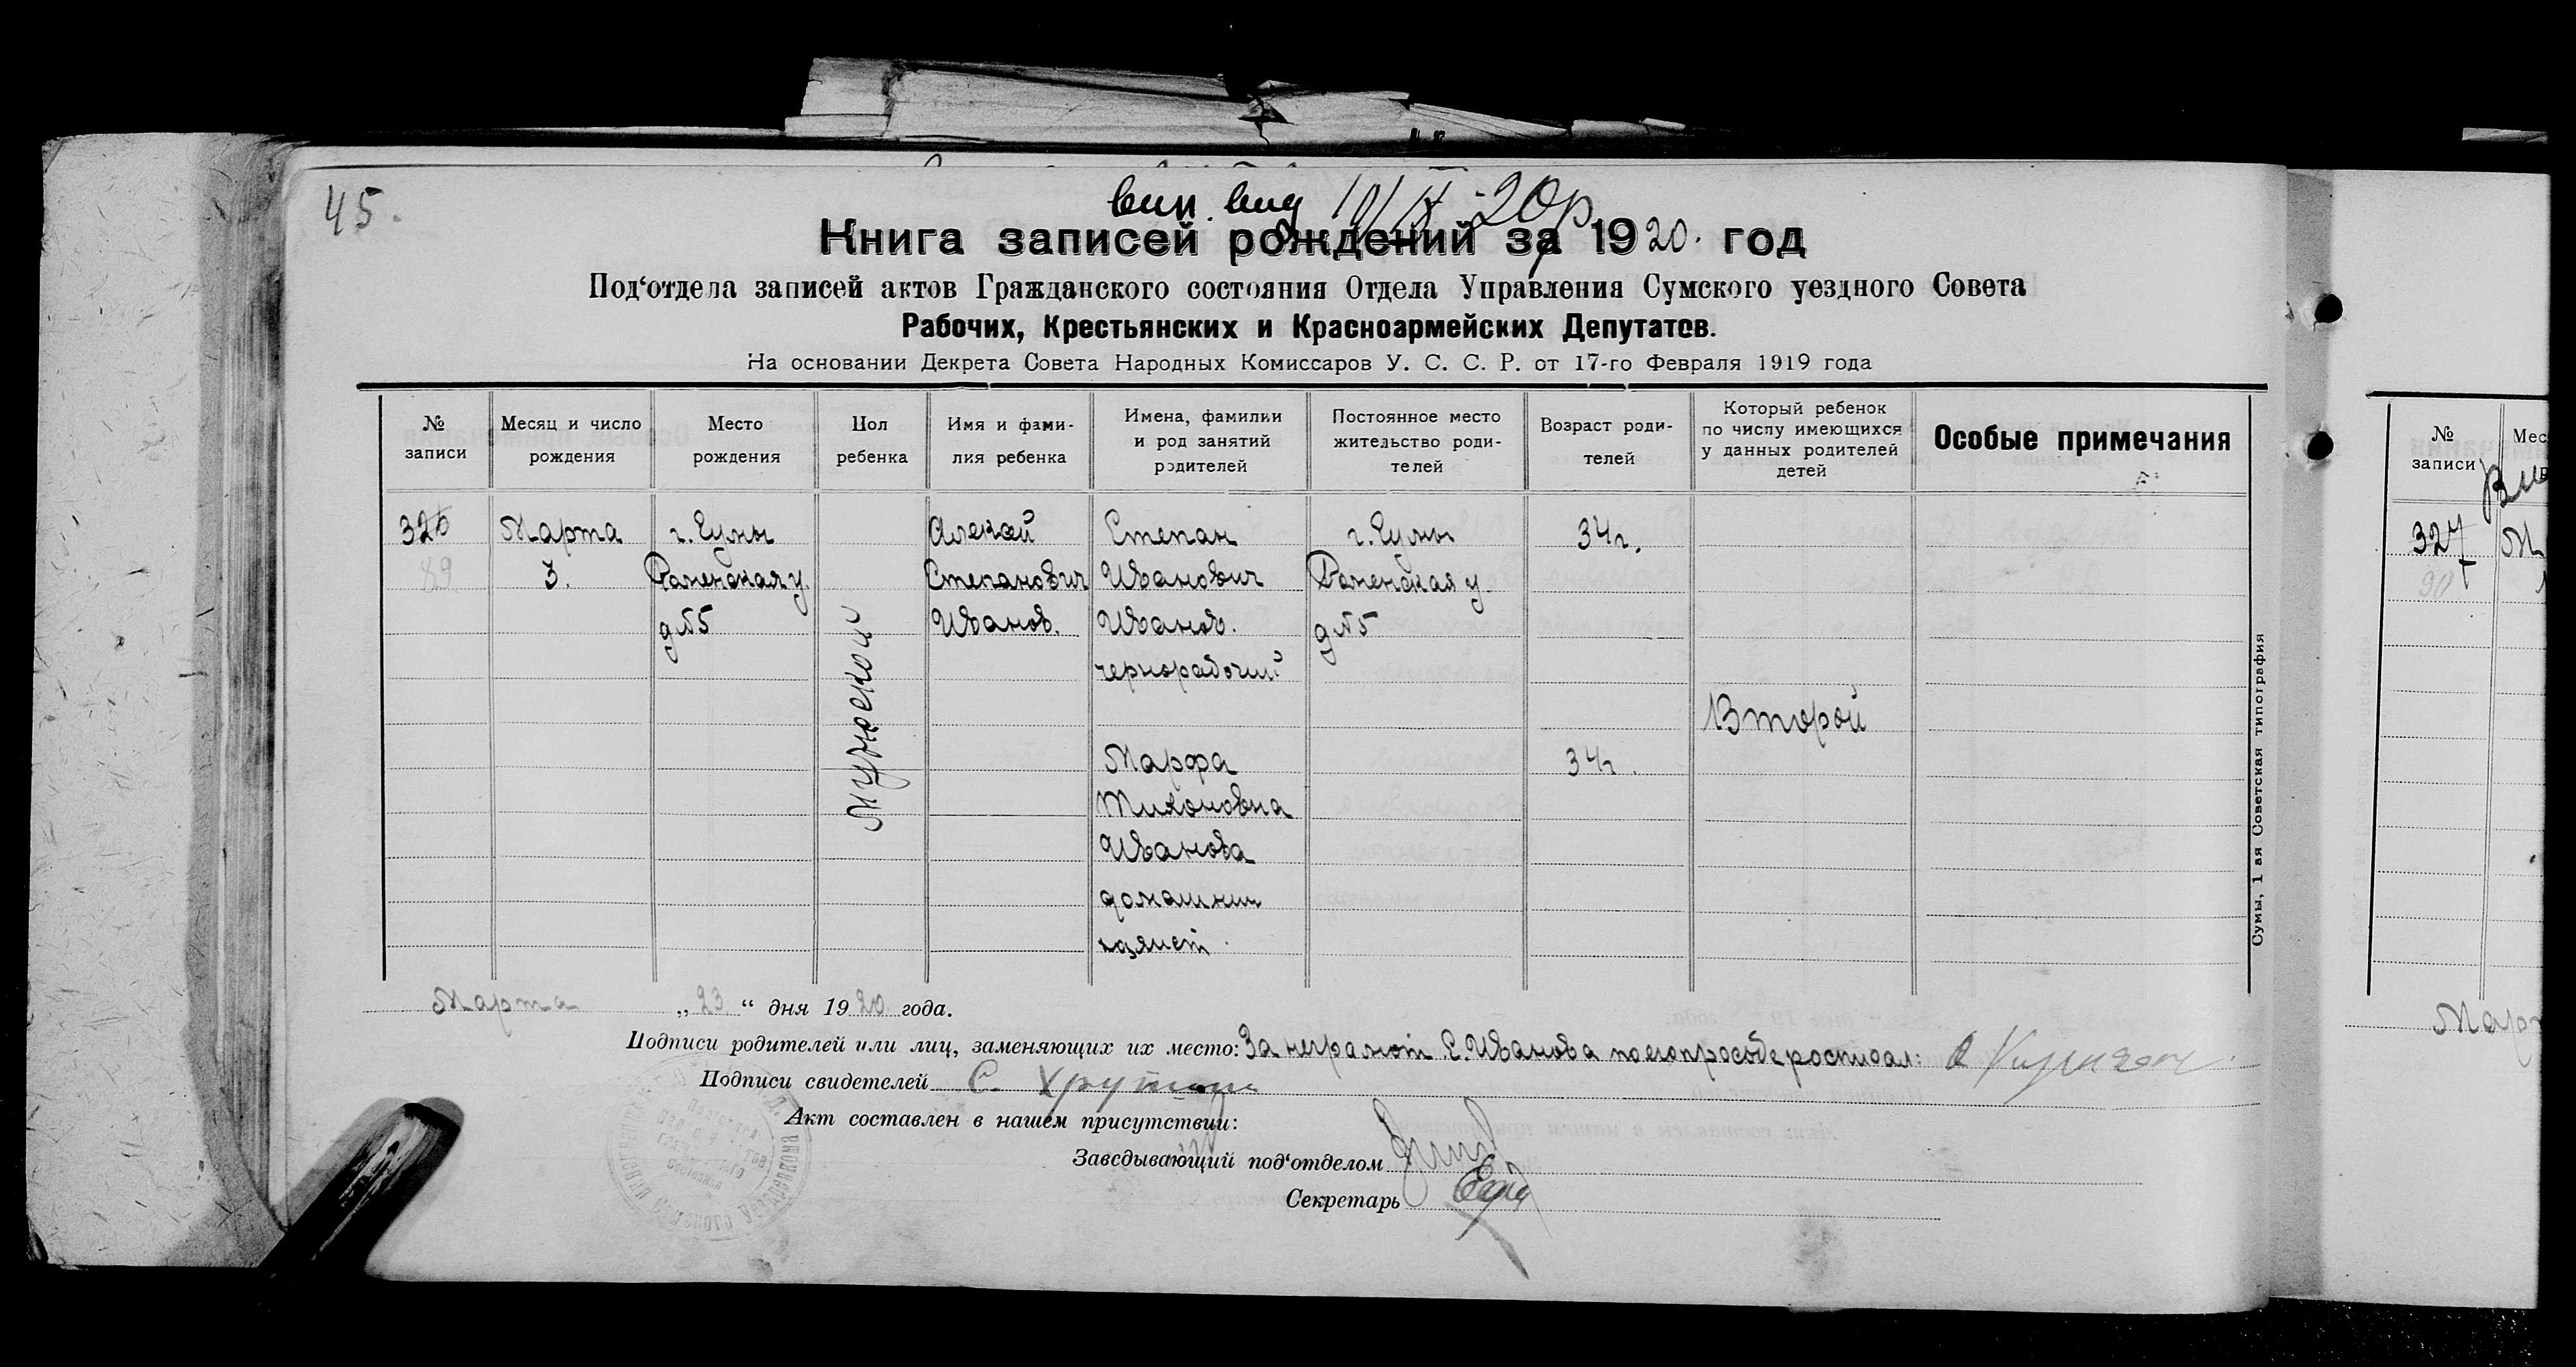 45.
вип. вид 19/IX-20р
Книга записей рождений за 1920. год
Под‘отдела записей актов Гражданского состояния Отдела Управления Сумского уездного Совета
Рабочих, Крестьянских и Красноармейских Депутатов.
На основании Декрета Совета Народных Комиссаров У. С. С. Р. от 17-го Февраля 1919 года
№ записи
Месяц и число рождения
Место рождения
Пол ребенка
Имя и фами-
лия ребенка
Имена, фамилии
и род занятий
родителей
Постоянное место
жительство роди-
телей
Возраст роди-
телей
Который ребенок
по числу имеющихся
у данных родителей
детей
Особые примечания
326
89
Марта
3.
г. Сумы
Роменская у
д №5
мужеской
Алексей
Степанович
Иванов.
Степан
Иванович
Иванов.
чернорабочий
Марфа
Тихоновна
Иванова
домашни
хозяист.
г. Сумы
Роменская у
д №5
34 г.
34 г.
Второй
Сумы, 1 ая Советская типография
Марта „23“ дня 1920 года.
Подписи родителей или лиц, заменяющих их место: За неграмот С. Иванова по его прозбе росписал:
Подписи свидетелей С.
Акт составлен в нашем присутствии:
Заведывающий под‘отделом
Секретарь
№
записи
Мес
327
90
М
Март